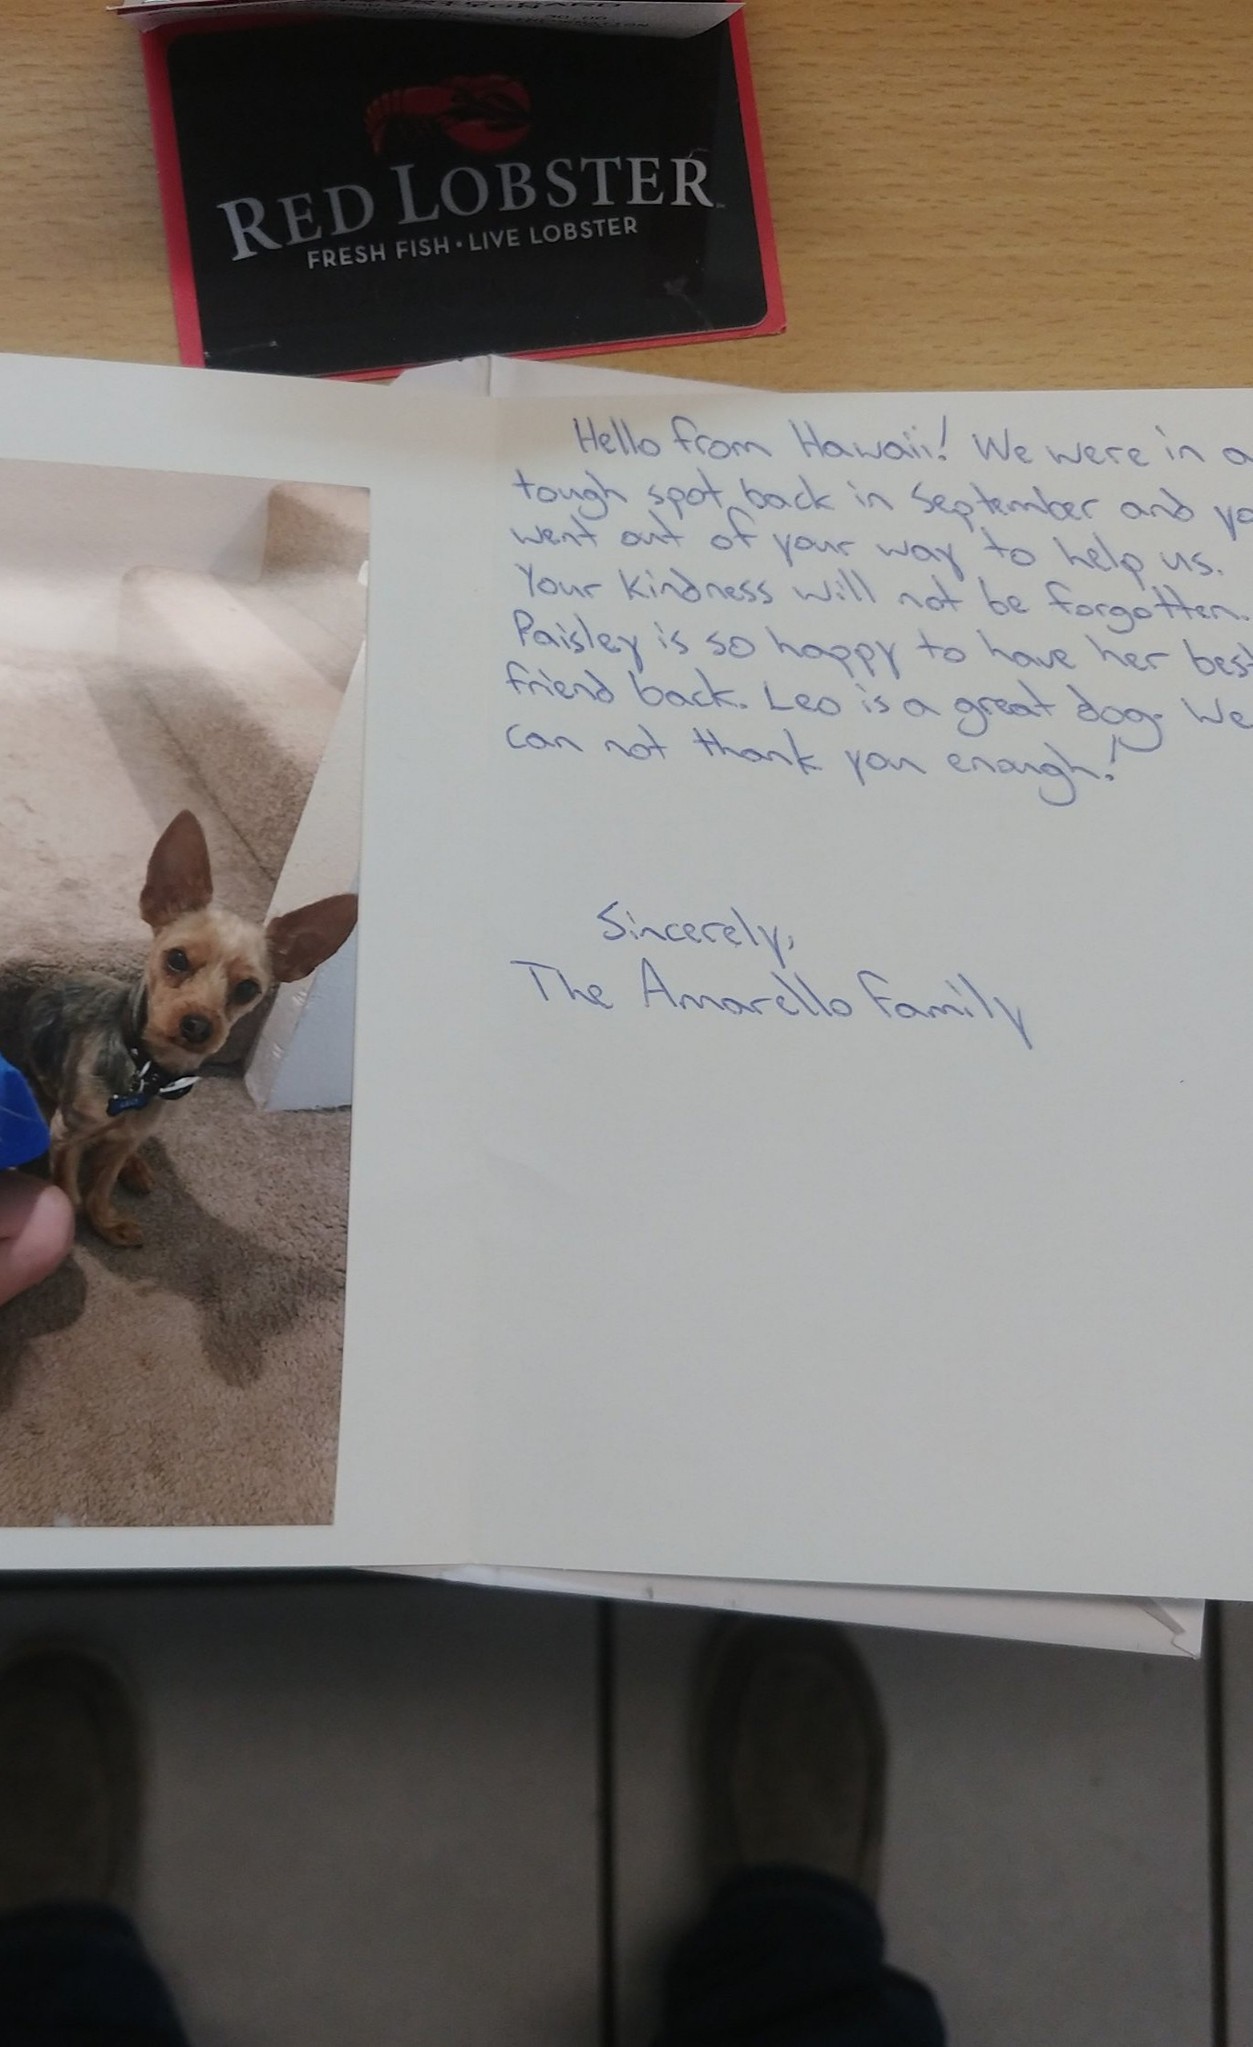 RED LOBSTER
FRESH FISH • LIVE LOBSTER
Hello from Hawaii! We were in a
tough spot back in September and yo
went out of your way to help us.
Your kindness will not be forgotten.
Paisley is so happy to have her best
friend back. Leo is a great dog. We
can not thank you enough!
Sincerely,
The Amarello Family